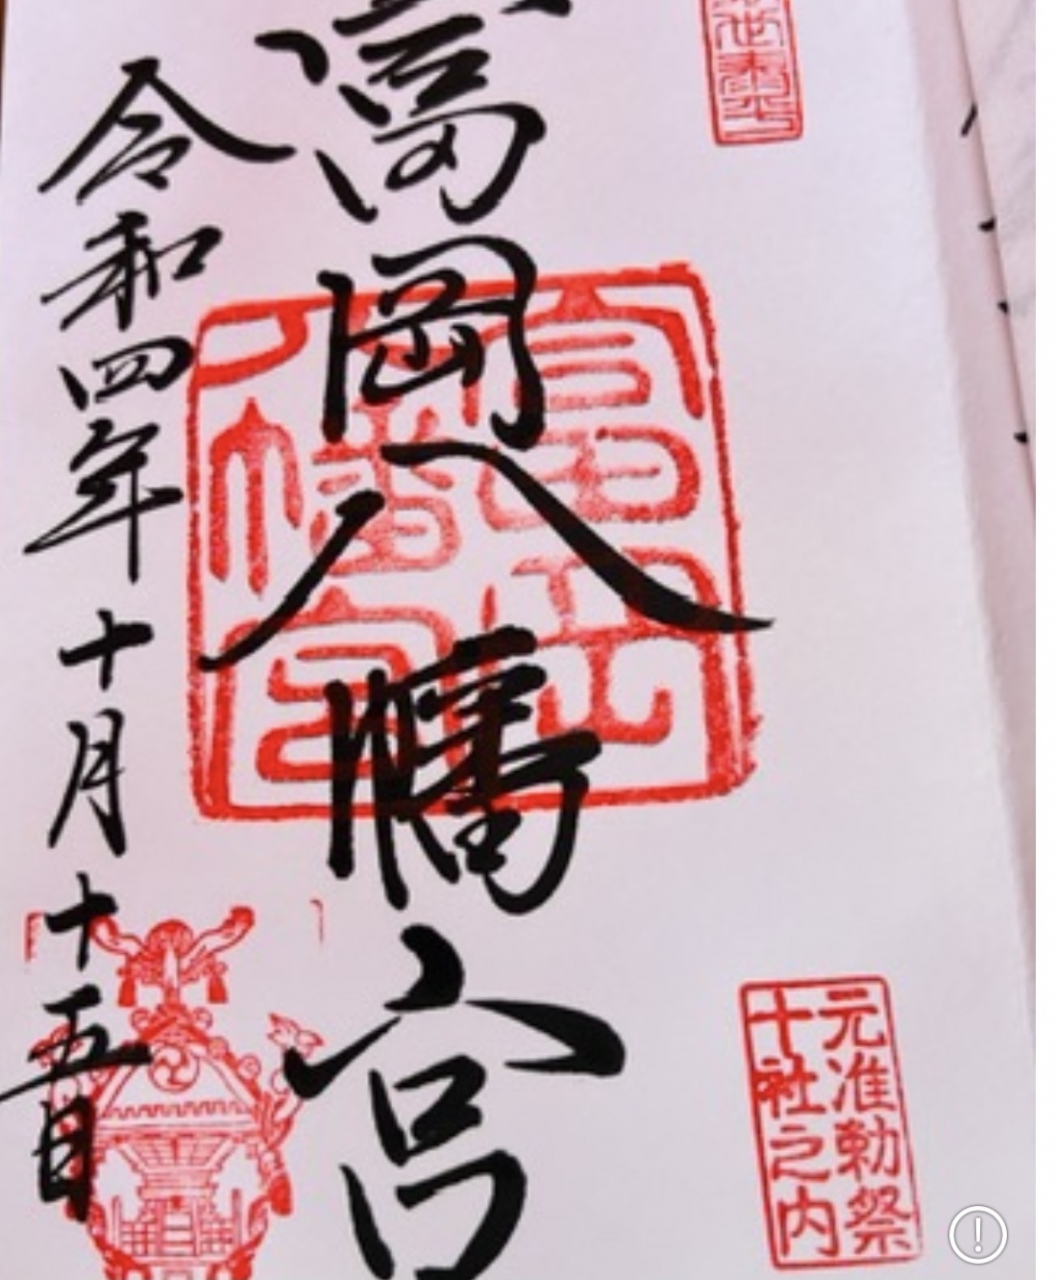 元准勅祭
十社之内
富岡八幡宮
富岡
八幡宮
令和四年十月十五日